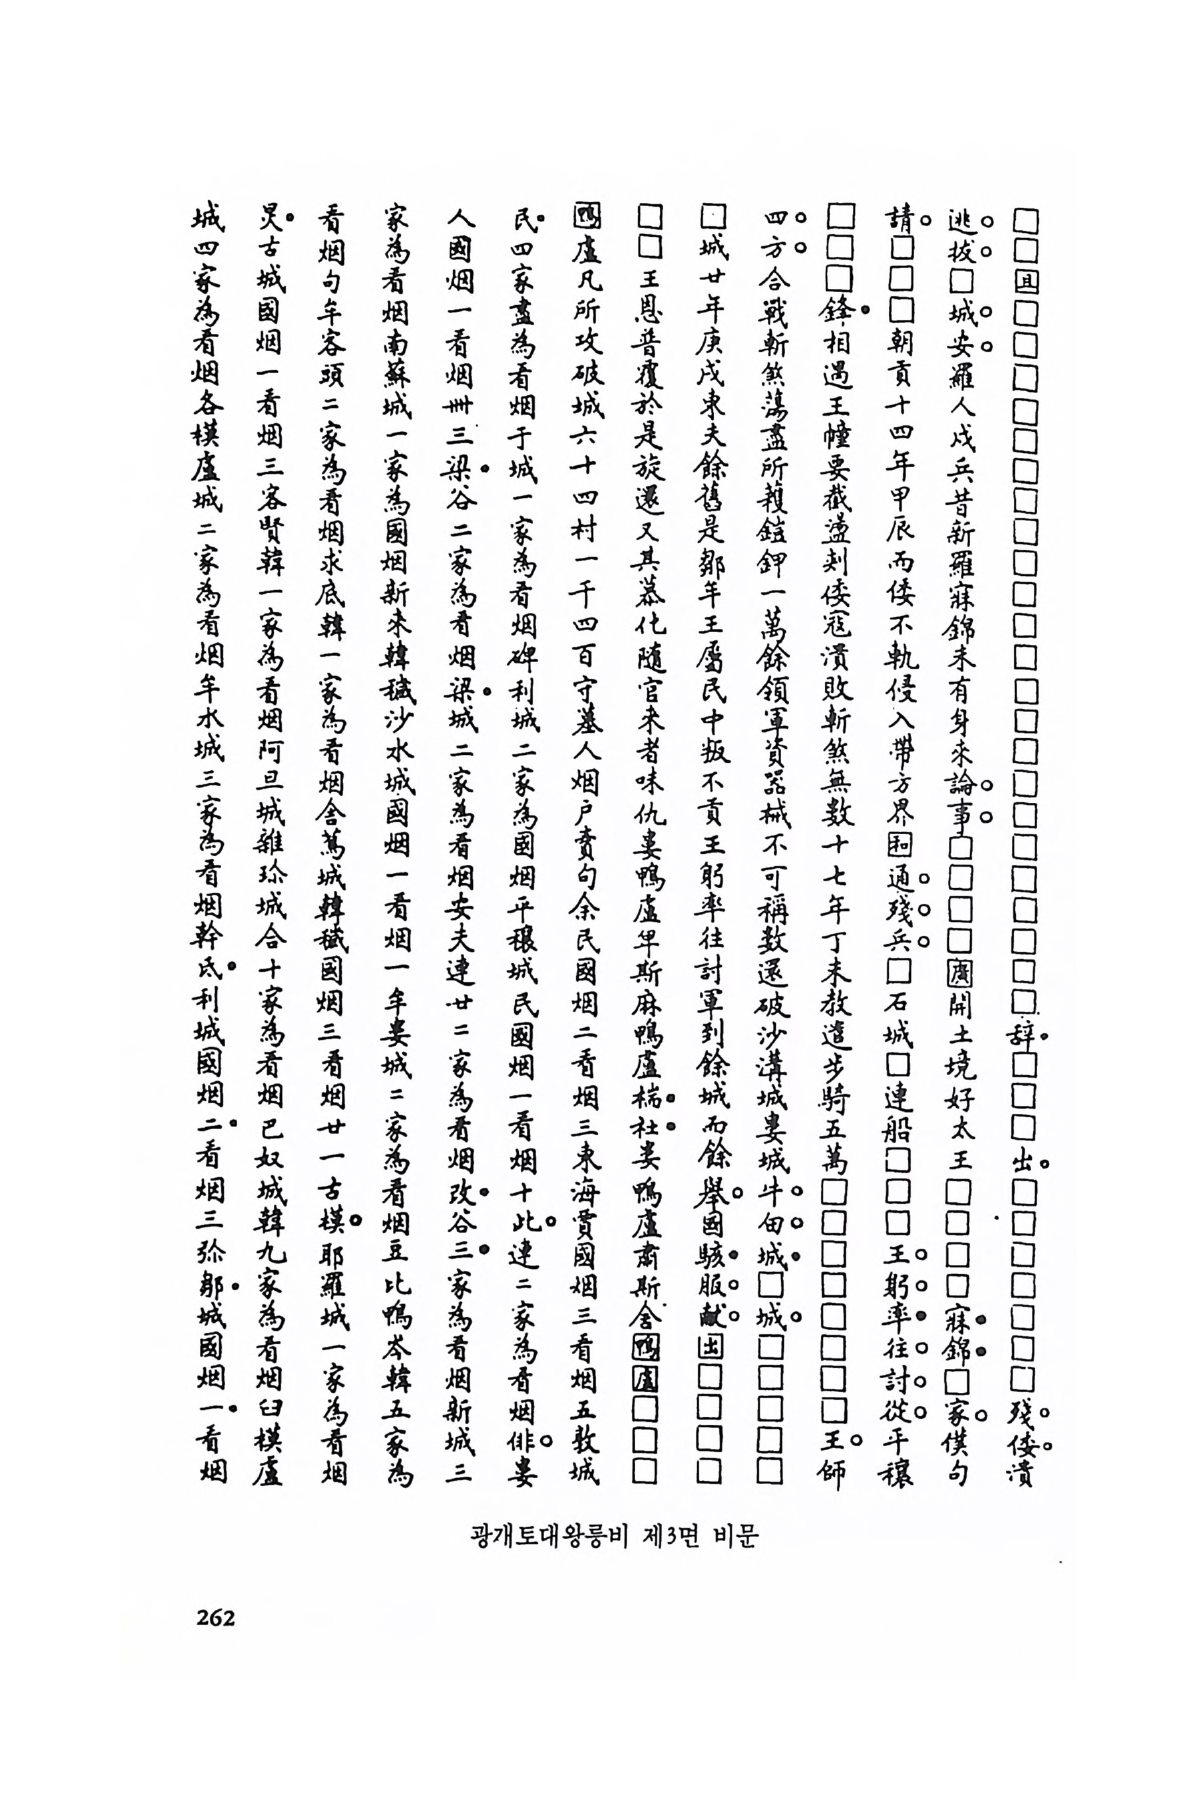 □□且□□□□□□□□□□□□□□□□□□□□□□□辞□□□出□□□□□□□殘倭潰
逃拔□城安羅人戍兵昔新羅寐錦未有身來論事□□□□廣開土境好太王□□□□寐錦□家僕句
請□□□朝貢十四年甲辰而倭不軌侵入帶方界和通殘兵□石城□連船□□□王躬率往討從平穰
□□□鋒相遇王幢要截盪刾倭寇潰敗斬煞無数十七年丁未教遣步騎五萬□□□□□□□□王師
四方合戰斬煞蕩盡所穫鎧鉀一萬餘領軍資器械不可稱数還破沙溝城婁城牛甶城□城□□□□□
□城廿年庚戌東夫餘舊是鄒牟王屬民中叛不貢王躬率往討軍到餘城而餘舉國駭服献出□□□□
□□王恩普覆於是旋還又其慕化隨官来者味仇婁鴨盧卑斯麻鴨盧椯社婁鴨盧肅斯舍鴨盧□□□
鴨盧凡所攻破城六十四村一千四百守墓人烟户賣句余民國烟二看烟三東海賈國烟三看烟五敦城
民四家盡為看烟于城一家為看烟碑利城二家為國烟平穰城民國烟一看烟十此連二家為看烟俳婁
人國烟一看烟卌三梁谷二家為看烟梁城二家為看烟安夫連廿二家為看烟改谷三家為看烟新城三
家為看烟南蘇城一家為國烟新来韓穢沙水城國烟一看烟一牟婁城二家為看烟豆比鴨岑韓五家為
看烟句牟客頭二家為看烟求底韓一家為看烟舍蔦城韓穢國烟三看烟廿一古模耶羅城一家為看烟
炅古城國烟一看烟三客賢韓一家為看烟阿旦城雜珎城合十家為看烟巴奴城韓九家為看烟臼模盧
城四家為看烟各模盧城二家為看烟牟水城三家為看烟幹氐利城國烟二看烟三弥鄒城國烟一看烟
광개토대왕릉비 제3면 비문
262